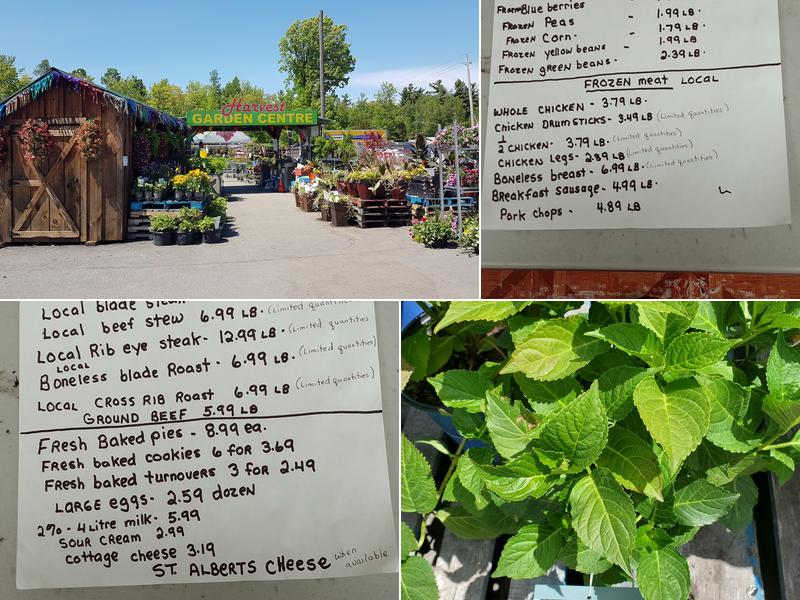 Harvest
GARDEN CENTRE
Frozen Blue berries
Frozen Peas - 1.99 LB.
Frozen Corn. - 1.79 LB.
Frozen yellow beans - 1.99 LB
Frozen green beans. - 2.39 LB.
FROZEN meat LOCAL
WHOLE CHICKEN - 3.79 LB.
Chicken DRUMSTICKS - 3.49 LB (Limited quantities)
½ CHICKEN - 3.79 LB. (Limited quantities)
CHICKEN Legs - 2.89 LB (Limited quantities)
Boneless breast - 6.99 LB (Limited quantities)
Breakfast sausage - 4.99 LB.
Pork chops - 4.89 LB
Local blade steak
Local beef stew 6.99 LB. (Limited quantities
Local Rib eye steak - 12.99 LB. (Limited quantities
LOCAL
Boneless blade Roast - 6.99 LB. (Limited quantities)
LOCAL CROSS RIB Roast 6.99 LB (Limited quantities)
GROUND BEEF 5.99 LB
FRESH Baked pies - 8.99 ea.
Fresh baked cookies 6 for 3.69
Fresh baked turnovers 3 for 2.49
LARGE eggs - 2.59 dozen
2% - 4 Litre milk - 5.99
SOUR CREAM 2.99
cottage cheese 3.19
ST. ALBERTS CHeese when available